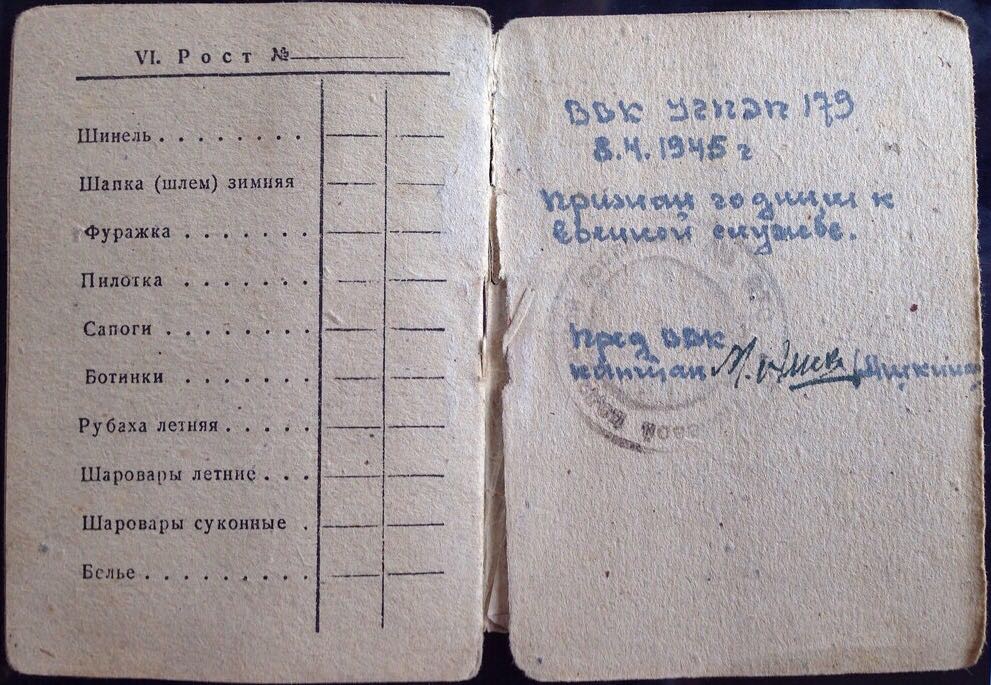 VI. Рост №
Шинель . . . . . . . . .
Шапка (шлем) зимняя
Фуражка . . . . . . .
Пилотка . . . . . . .
Сапоги . . . . . . . .
Ботинки . . . . . . .
Рубаха летняя . . . . .
Шаровары летние . . .
Шаровары суконные .
Белье . . . . . . . . .
ВВК 179
8.4.1945 г
Признан годным к
военной службе.
Пред ВВК
капитан